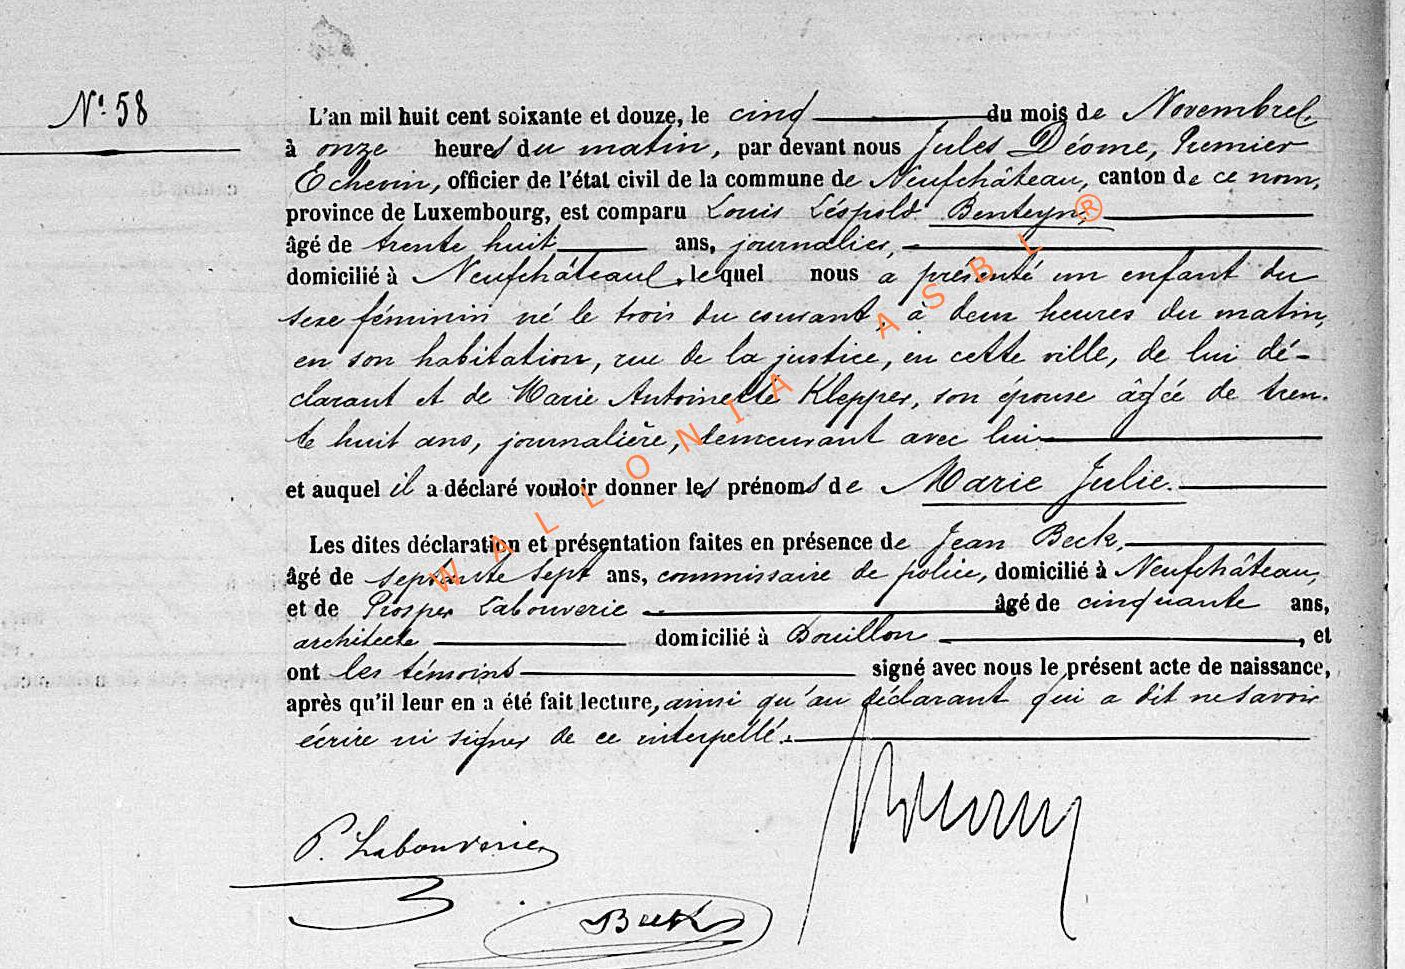 N° 58
L'an mil huit cent soixante et douze, le cinq du mois de Novembre,
à onze heures du matin, par devant nous Jules Déome, Premier
Echevin, officier de l'état civil de la commune de Neufchâteau, canton de ce nom,
province de Luxembourg, est comparu Louis Léopold Benteyn,
âgé de trente huit ans, journalier,
domicilié à Neufchâteau, lequel nous a présenté un enfant du
sexe féminin né le trois du courant, à deux heures du matin,
en son habitation, rue de la justice, en cette ville, de lui dé-
clarant et de Marie Antoinette Klepper, son épouse âgée de tren-
te huit ans, journalière, demeurant avec lui
et auquel il a déclaré vouloir donner les prénoms de Marie Julie.
Les dites déclaration et présentation faites en présence de Jean Beck,
âgé de septante sept ans, commissaire de police, domicilié à Neufchâteau,
et de Prosper Labouverie âgé de cinquante ans,
architecte domicilié à Bouillon, et
ont les témoins signé avec nous le présent acte de naissance,
après qu'il leur en a été fait lecture, ainsi qu'au déclarant qui a dit ne savoir
écrire ni signer de ce interpellé.
P. Labouverie
Beck
WALLONIA ASBL ®